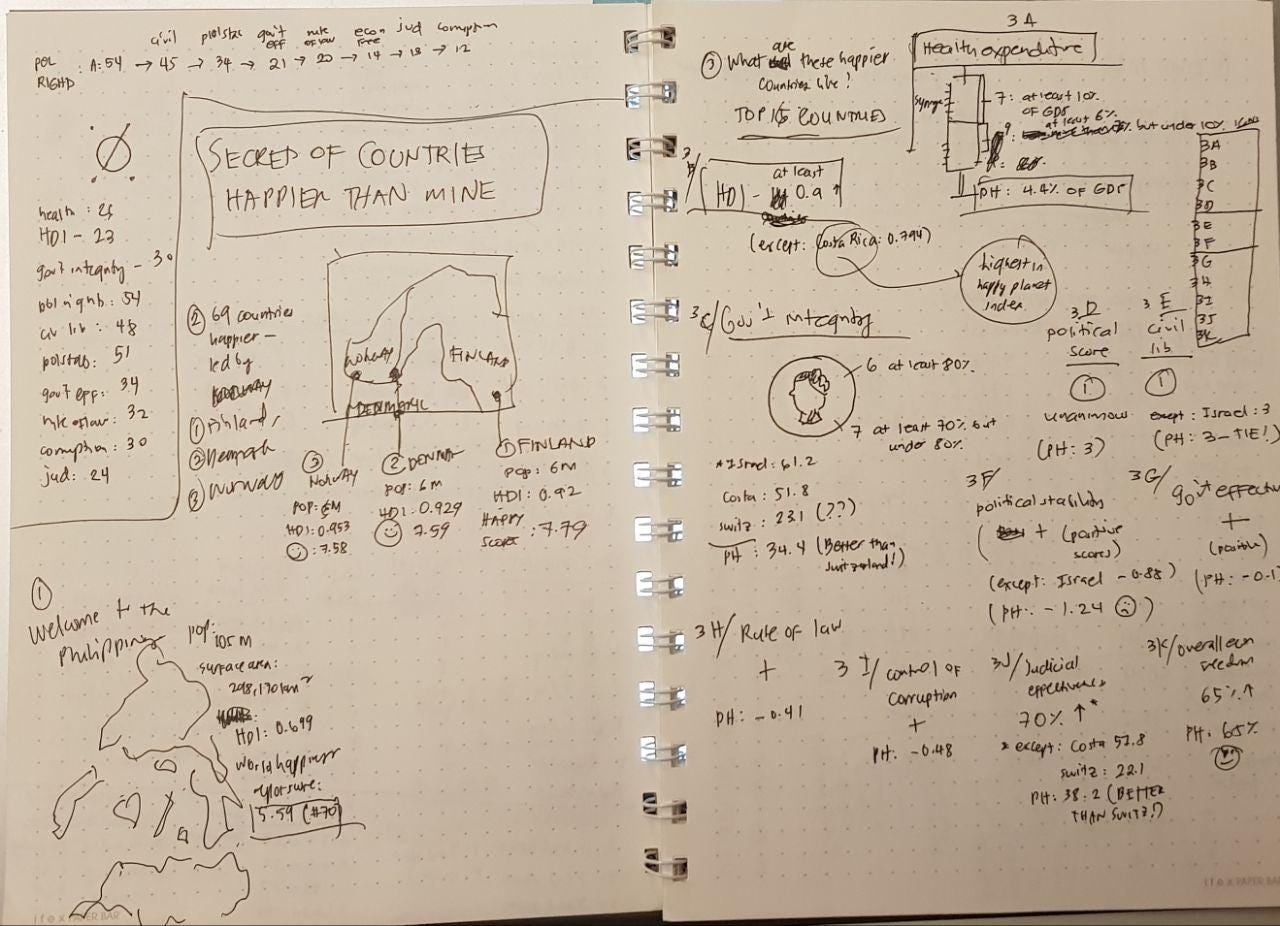 civil polstab gov't eff rule of law econ free jud corruption
POL RIGHTS : A: 54 → 45 → 34 → 21 → 20 → 14 → 13 → 12
SECRET OF COUNTRIES
HAPPIER THAN MINE
health : 25
HDI - 23
gov't integrity - 30
pol rights : 54
civ lib : 48
polstab : 51
gov't eff : 34
rule of law : 32
corruption : 30
jud : 24
② 69 countries
happier –
led by
① Finland,
② Denmark
③ Norway
NORWAY
FINLAND
DENMARK
③
NORWAY
POP: 6M
HDI: 0.953
: 7.58
② DENMA
POP: 6M
HDI: 0.929
7.59
① FINLAND
POP: 6M
HDI: 0.92
HAPPY
SCORE : 7.79
①
Welcome to the
Philippines
pop:
105 m
surface area:
298,170 km²
HDI: 0.699
world happiness
5.59 (#70)
ifex PAPER BAR
③ What are these happier
countries like?
TOP 15 COUNTRIES
3A
Health expenditure
syringe
7: at least 10%
of GDP
at least 6%
but under 10%
PH: 4.4% of GDP
3A
3B
3C
3D
3E
3F
3G
3H
3I
3J
3K
3B/
HDI - at least 0.9 ↑
(except: Costa Rica: 0.794)
highest in
happy planet
index
3C/ Gov't integrity
6 at least 80%
7 at least 70% but
under 80%
* Israel: 61.2
Costa: 51.8
Switz: 23.1 (??)
PH: 34.4 (Better than
Switzerland!)
3D
political
score
①
unanimous
(PH: 3)
3E
civil
lib
①
except: Israel: 3
(PH: 3 – TIE!)
3F/
political stability
+ (positive
scores)
(except: Israel -0.88)
(PH: -1.24 ☹)
3G/
gov't effectiv
+
(positive)
(PH: -0.1
3H/ Rule of law
+
PH: -0.41
3I/ control of
corruption
+
PH: -0.48
3J/ Judicial
effectiveness
70% ↑*
* except: Costa 57.8
Switz: 22.1
PH: 38.2 (BETTER
THAN SWITZ!)
3K/ overall econ
freedom
65% ↑
PH: 65%
ifex PAPER BA